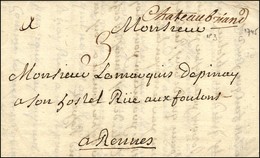 Chateaubriand
Monsieur
Monsieur Lemarquis Depinay
a son hostel Rüe aux foulons
a Rennes